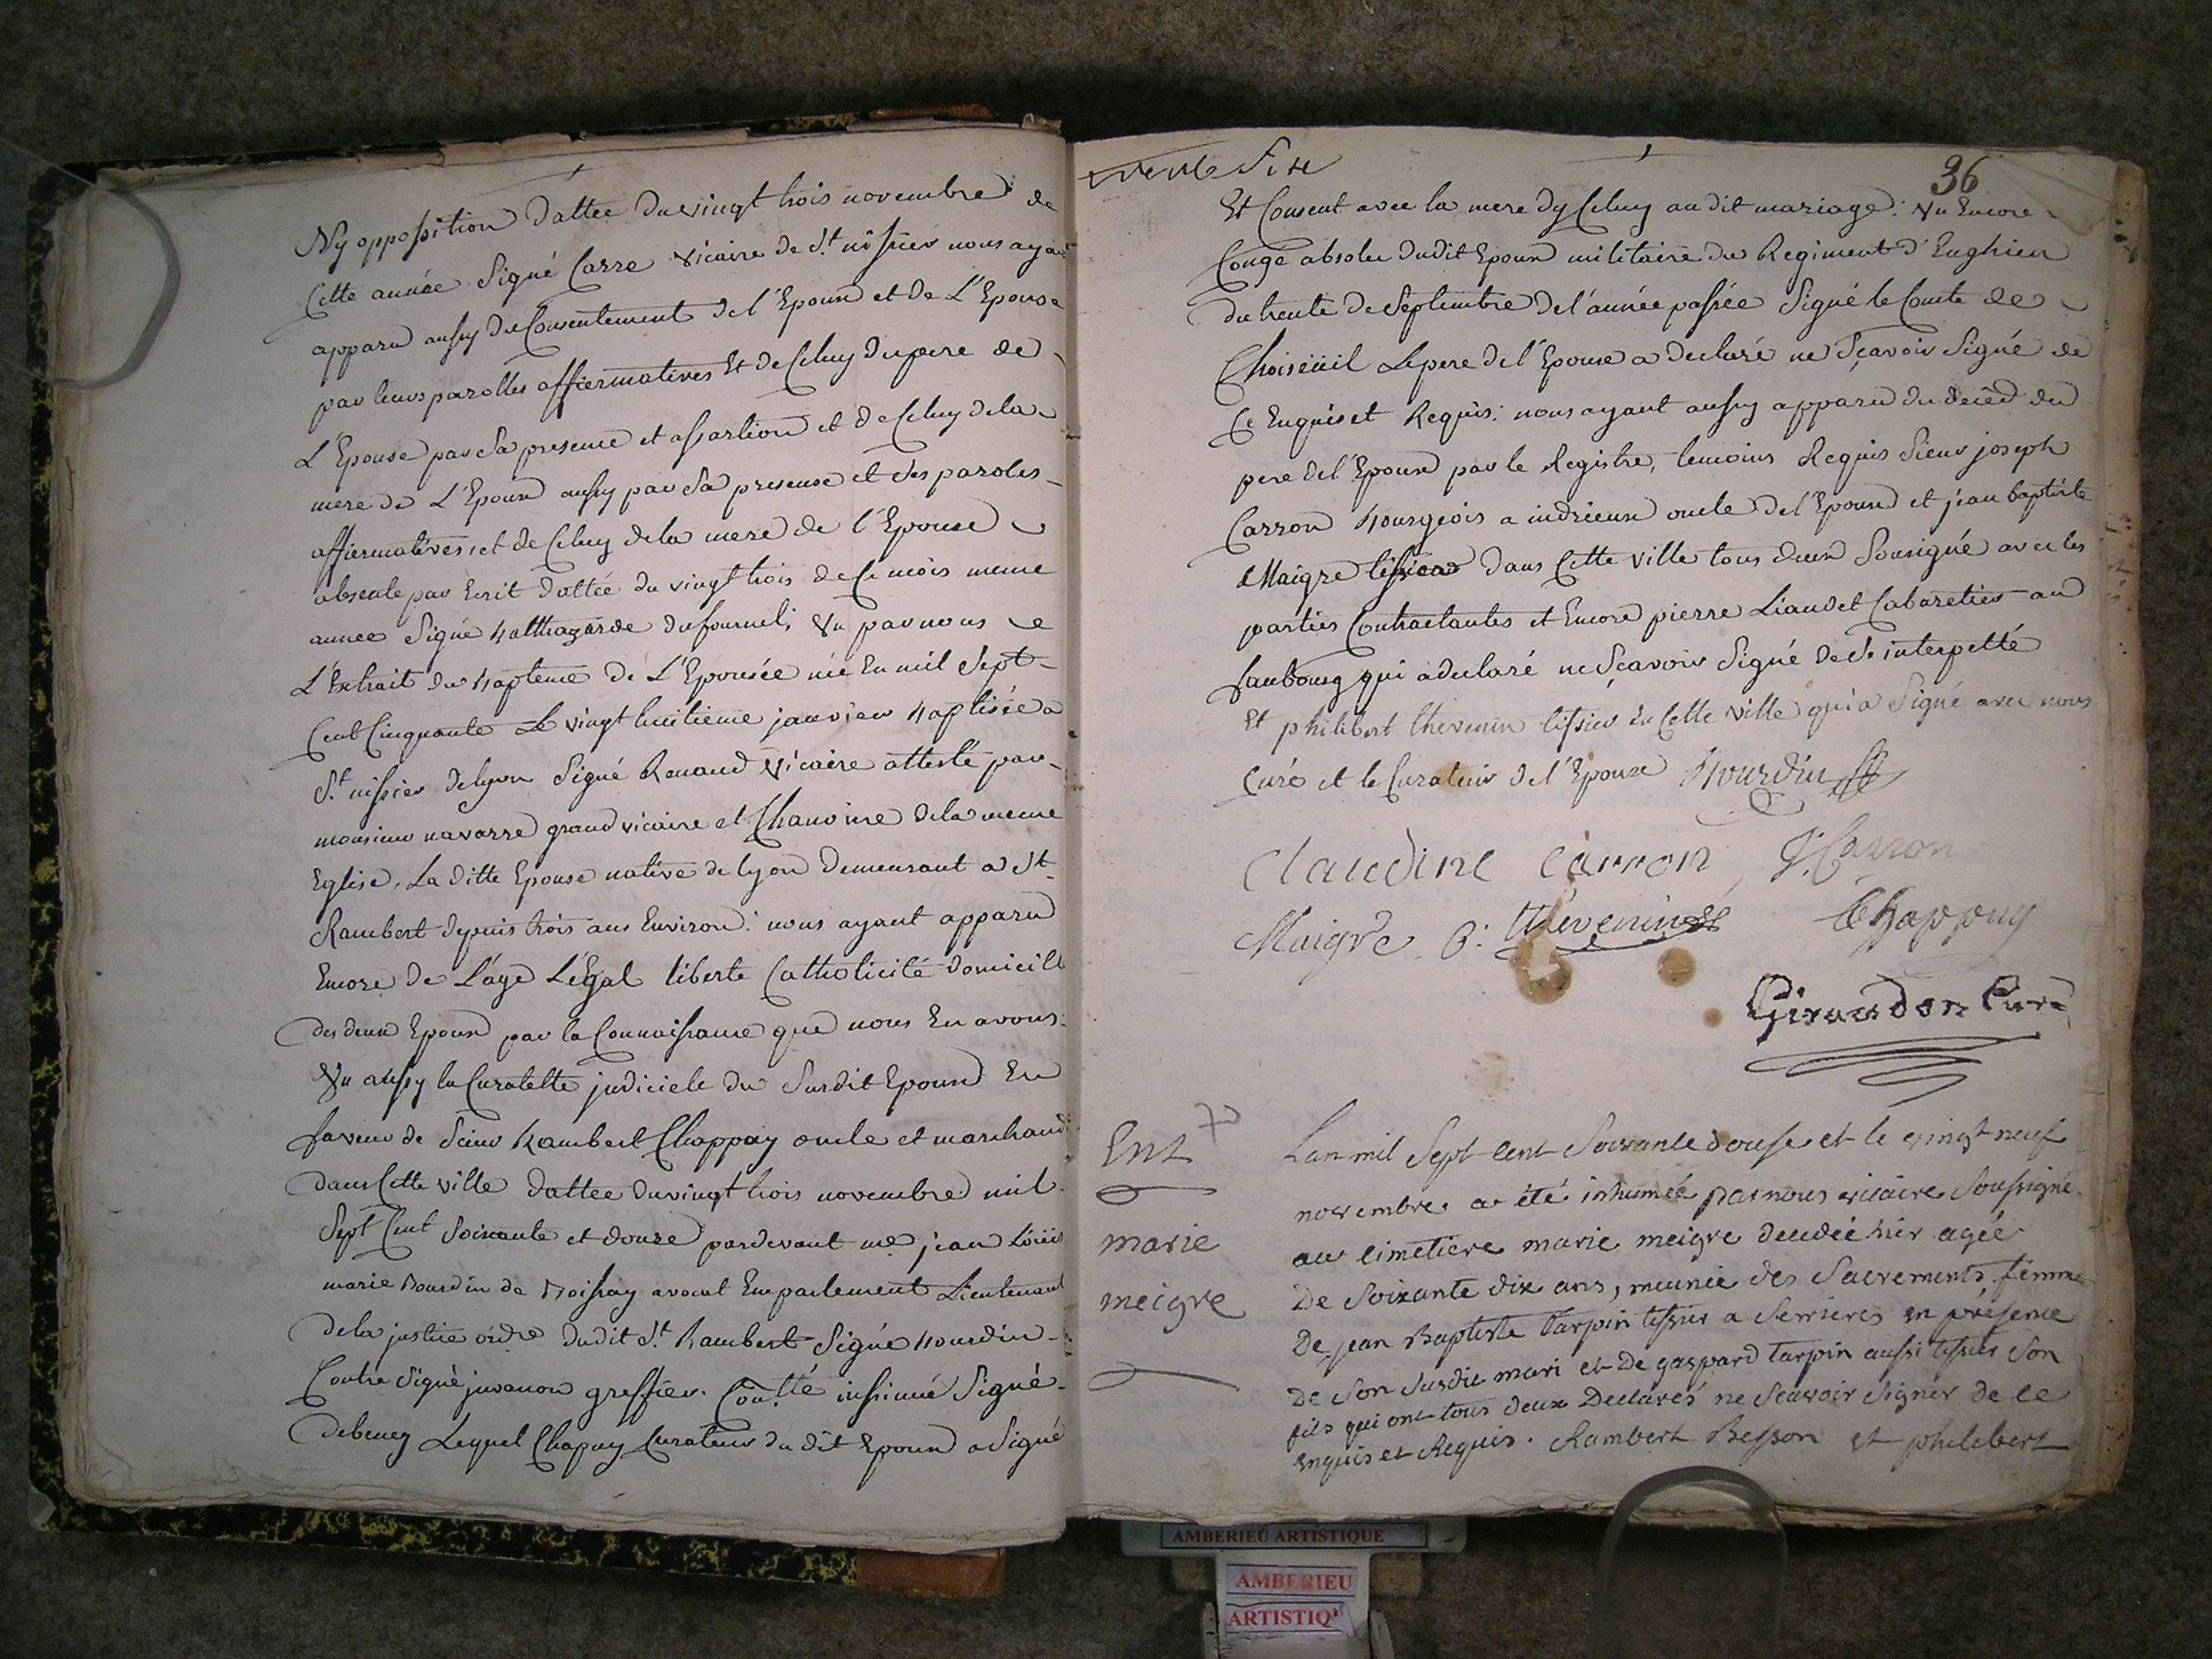 Ny opposition dattée du vingt trois novembre de
Cette année Signé Carre vicaire de St. nissier nous ayant
apparu aussy du Consentement de l'Epoux et de L'Epouse
par leurs parolles affiermatives Et de Celuy du pere de
L'Epouse par Sa presence et assartion et de Celuy dela
mere de L'Epoux aussy par Sa presense et Ses paroles
affiermatives, et de Celuy dela mere de l'Epouse
absente par Ecrit dattée du vingt trois de Ce mois meme
annee Signé Balthazarde dufournel, Vu par nous
L'Extrait du Bapteme de L'Epousée née En mil Sept
Cent Cinquante Le vingt huitieme janvier Baptisée a
St. nissier de lyon Signé Renaud Vicaire attesté par
monsieur navarre grand vicaire et Chanoine dela meme
Eglise, La ditte Epouse native de lyon Demeurant a St.
Rambert depuis trois ans Environ: nous ayant apparu
Encore de L'age Légal liberte Catholicité domicille
des deux Epoux par la Connaissance que nous En avons:
Vu aussy la Curatelle judiciele du Surdit Epoux En
faveur de Sieur Rambert Chappuy oncle et marchand
dans Cette ville dattee du vingt trois novembre mil
Sept Cent Soixante et douze pardevant me jean Loüis
marie Bourdin de Boissay avocat En parlement Lieutenant
dela justice ordre dudit St. Rambert Signé Bourdin
Contre Signé juvanon greffier. Con.tté insinué Signé
debeney Lequel Chapuy Curateur du dit Epoux a Signé
trente Sixe
36
Et Consent avec la mere dy Celuy au dit mariage: Vu Encore
Congé absolu dudit Epoux militaire du Regiment d'Enghien
du trente de Septembre de l'année passée Signé le Comte de
Choiseüil Le pere de l'Epouse a declaré ne Sçavoir Signé de
Ce Enquis et Requis: nous ayant aussy apparu du décéd du
pere de l'Epoux par le Registre, temoins Requis Sieur joseph
Carron Bourgeois a indrieux oncle de l'Epoux et jean baptiste
Maigre tissier dans Cette ville tous deux Sousigné avec les
parties Contractantes et Encore pierre Liaudet Cabaretier au
faubourg qui a declaré ne Sçavoir Signé de Ce interpellé
Et philibert thevenin tissier En Cette ville qui a Signé avec nous
Curé et le Curateur de l'Epouse Bourdin
Claudine Carron J. Carron
Maigre P: thevenin Chappuy
Girardon Curé
Ent
marie
meigre
Lan mil Sept cent Soixante douse et le vingt neuf
novembre a été inhumée par nous vicaire Soussigné
au cimetiere marie meigre décédée hier agée
De Soixante dix ans, munie des Sacrements femme
De jean Baptiste tarpin tissier a Serrieres en présence
De Son Susdit mari et De gaspard tarpin aussi tissier Son
fils qui ont tous deux Declarés ne Scavoir Signer de ce
enquis et Requis. Rambert Besson et philebert
AMBERIEU ARTISTIQUE
AMBERIEU
ARTISTIQ